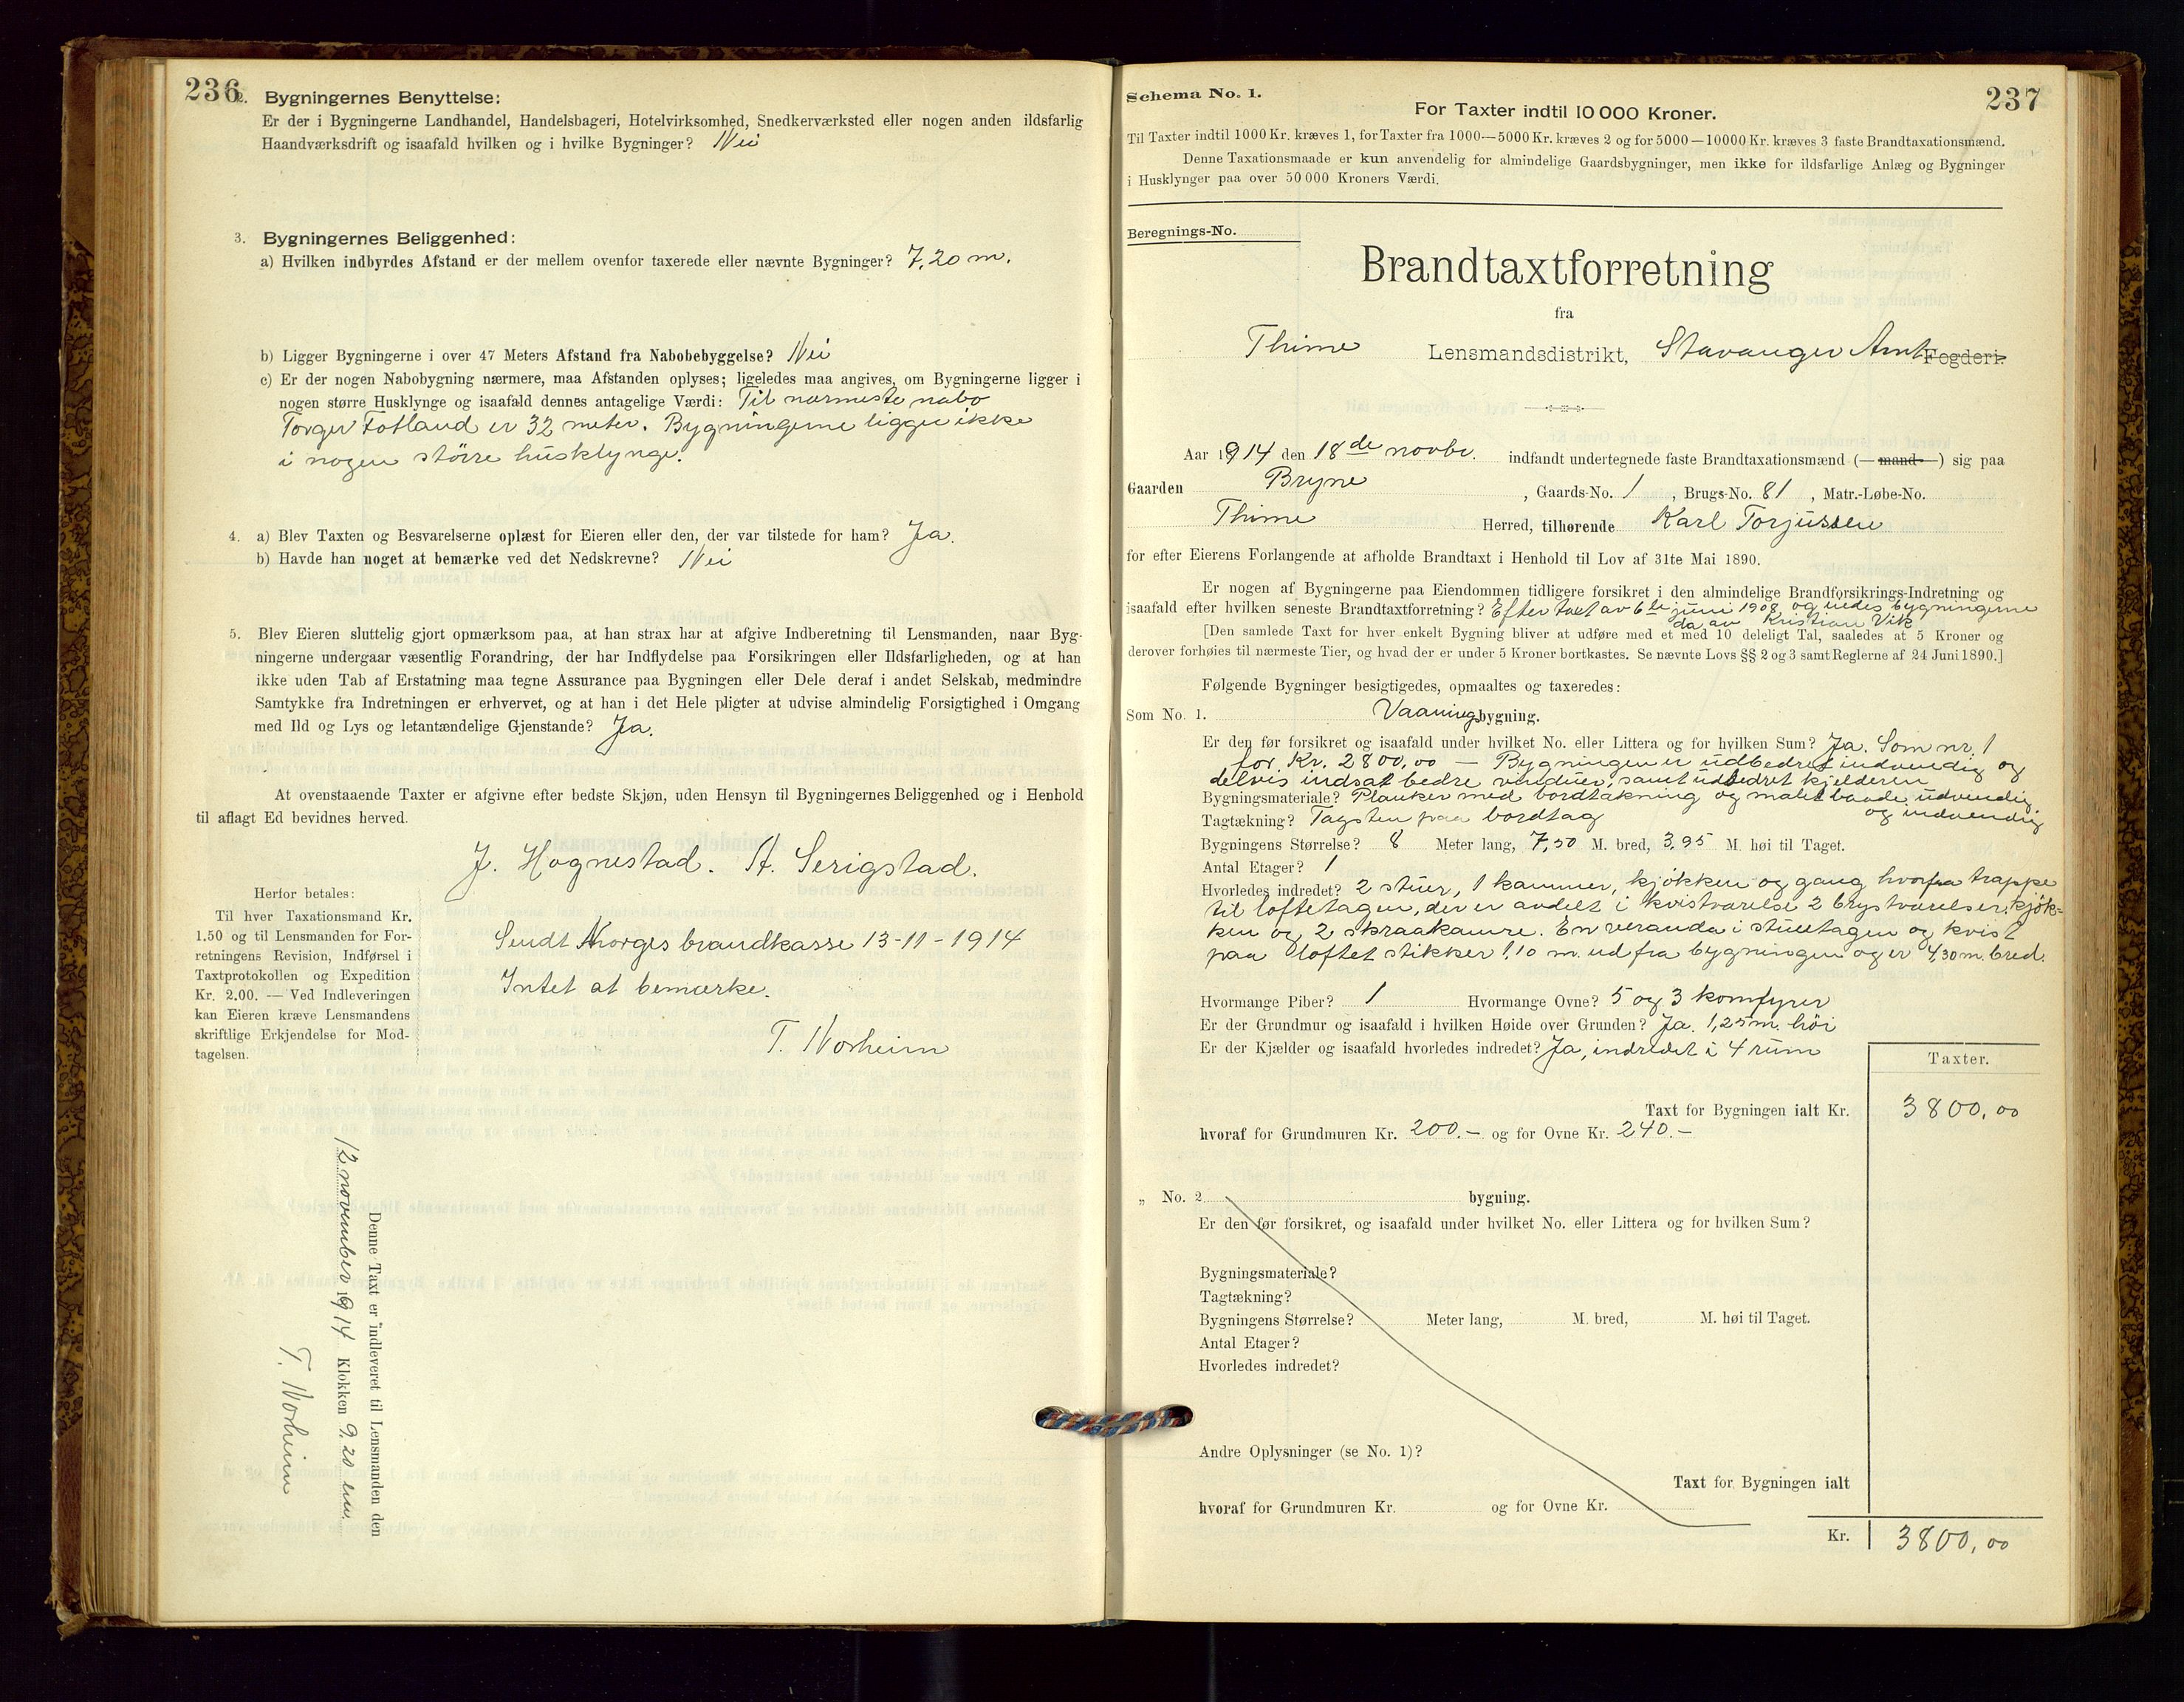 236
2. Bygningernes Benyttelse:
Er der i Bygningerne Landhandel, Handelsbageri, Hotelvirksomhed, Snedkerværksted eller nogen anden ildsfarlig
Haandværksdrift og isaafald hvilken og i hvilke Bygninger? Nei
3. Bygningernes Beliggenhed:
a) Hvilken indbyrdes Afstand er der mellem ovenfor taxerede eller nævnte Bygninger? 7,20 m.
b) Ligger Bygningerne i over 47 Meters Afstand fra Nabobebyggelse? Nei
c) Er der nogen Nabobygning nærmere, maa Afstanden oplyses; ligeledes maa angives, om Bygningerne ligger i
nogen større Husklynge og isaafald dennes antagelige Værdi: Til nærmeste nabo
Torger Fotland er 32 meter. Bygningerne ligger ikke
i nogen större husklynge.
4. a) Blev Taxten og Besvarelserne oplæst for Eieren eller den, der var tilstede for ham? Ja.
b) Havde han noget at bemærke ved det Nedskrevne? Nei
5. Blev Eieren sluttelig gjort opmærksom paa, at han strax har at afgive Indberetning til Lensmanden, naar Byg-
ningerne undergaar væsentlig Forandring, der har Indflydelse paa Forsikringen eller Ildsfarligheden, og at han
ikke uden Tab af Erstatning maa tegne Assurance paa Bygningen eller Dele deraf i andet Selskab, medmindre
Samtykke fra Indretningen er erhvervet, og at han i det Hele pligter at udvise almindelig Forsigtighed i Omgang
med Ild og Lys og letantændelige Gjenstande? Ja.
At ovenstaaende Taxter er afgivne efter bedste Skjøn, uden Hensyn til Bygningernes Beliggenhed og i Henhold
til aflagt Ed bevidnes herved.
J. Hognestad. A. Serigstad.
Herfor betales:
Til hver Taxationsmand Kr.
1.50 og til Lensmanden for For-
retningens Revision, Indførsel i
Taxtprotokollen og Expedition
Kr. 2.00. — Ved Indleveringen
kan Eieren kræve Lensmandens
skriftlige Erkjendelse for Mod-
tagelsen.
Sendt Norges brandkasse 13-11-1914
Intet at bemærke.
T. Norheim
Denne Taxt er indleveret til Lensmanden den
12 november 1914 Klokken 9.20
T. Norheim
237
Schema No. 1.
For Taxter indtil 10 000 Kroner.
Til Taxter indtil 1000 Kr. kræves 1, for Taxter fra 1000—5000 Kr. kræves 2 og for 5000—10000 Kr. kræves 3 faste Brandtaxationsmænd.
Denne Taxationsmaade er kun anvendelig for almindelige Gaardsbygninger, men ikke for ildsfarlige Anlæg og Bygninger
i Husklynger paa over 50 000 Kroners Værdi.
Beregnings-No.
Brandtaxtforretning
fra
Thime Lensmandsdistrikt, Stavanger Amt Fogderi.
Aar 1914 den 18de novbr. indfandt undertegnede faste Brandtaxationsmænd (—mand—) sig paa
Gaarden Bryne, Gaards-No. 1, Brugs-No. 81, Matr.-Løbe-No.
Thime Herred, tilhørende Karl Torjussen
for efter Eierens Forlangende at afholde Brandtaxt i Henhold til Lov af 31te Mai 1890.
Er nogen af Bygningerne paa Eiendommen tidligere forsikret i den almindelige Brandforsikrings-Indretning og
isaafald efter hvilken seneste Brandtaxtforretning? Efter taxt av 6te juni 1908, og eiedes bygningerne
da av Kristian Vik
[Den samlede Taxt for hver enkelt Bygning bliver at udføre med et med 10 deleligt Tal, saaledes at 5 Kroner og
derover forhøies til nærmeste Tier, og hvad der er under 5 Kroner bortkastes. Se nævnte Lovs §§ 2 og 3 samt Reglerne af 24 Juni 1890.]
Følgende Bygninger besigtigedes, opmaaltes og taxeredes:
Som No. 1. Vaaningsbygning.
Er den før forsikret og isaafald under hvilket No. eller Littera og for hvilken Sum? Ja. Som nr. 1
for Kr. 2800,00 — Bygningen er udbedret indvendig og
delvis indsat bedre vinduer, samt udbedret kjelderen
Bygningsmateriale? Planker med bordtækning og malet baade udvendig
og indvendig
Tagtækning? Tagsten paa bordtag
Bygningens Størrelse? 8 Meter lang, 7,50 M. bred, 3,95 M. høi til Taget.
Antal Etager? 1
Hvorledes indredet? 2 stuer, 1 kammer, kjøkken og gang hvorfra trappe
til loftetagen, der er avdelt i kvistværelse 2 brystværelser, kjök-
ken og 2 skraakamre. En veranda i stueetagen og kvist
paa loftet stikker 1,10 m. ud fra bygningen og er 4,30 m. bred.
Hvormange Piber? 1 Hvormange Ovne? 5 og 3 komfyrer
Er der Grundmur og isaafald i hvilken Høide over Grunden? Ja. 1,25 m. höi
Er der Kjælder og isaafald hvorledes indredet? Ja, indredet i 4 rum
Taxter.
Taxt for Bygningen ialt Kr. 3800,00
hvoraf for Grundmuren Kr. 200.- og for Ovne Kr. 240.-
„ No. 2. bygning.
Er den før forsikret, og isaafald under hvilket No. eller Littera og for hvilken Sum?
Bygningsmateriale?
Tagtækning?
Bygningens Størrelse? Meter lang, M. bred, M. høi til Taget.
Antal Etager?
Hvorledes indredet?
Andre Oplysninger (se No. 1)?
Taxt for Bygningen ialt
hvoraf for Grundmuren Kr. og for Ovne Kr.
Kr. 3800,00